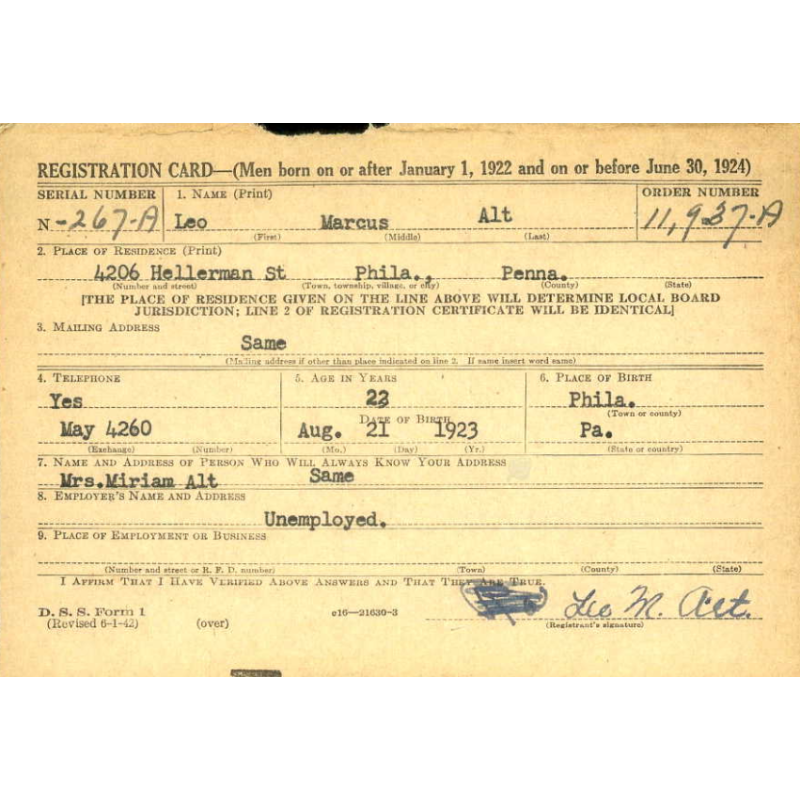 REGISTRATION CARD—(Men born on or after January 1, 1922 and on or before June 30, 1924)
SERIAL NUMBER 1. NAME (Print) ORDER NUMBER
N -267-A Leo Marcus Alt 11,937-A
(First) (Middle) (Last)
2. PLACE OF RESIDENCE (Print)
4206 Hellerman St Phila., Penna.
(Number and street) (Town, township, village, or city) (County) (State)
[THE PLACE OF RESIDENCE GIVEN ON THE LINE ABOVE WILL DETERMINE LOCAL BOARD
JURISDICTION; LINE 2 OF REGISTRATION CERTIFICATE WILL BE IDENTICAL]
3. MAILING ADDRESS
Same
(Mailing address if other than place indicated on line 2. If same insert word same)
4. TELEPHONE 5. AGE IN YEARS 6. PLACE OF BIRTH
Yes Phila.
(Town or county)
DATE OF BIRTH
May 4260 Aug. 21 1923 Pa.
(Exchange) (Number) (Mo.) (Day) (Yr.) (State or country)
7. NAME AND ADDRESS OF PERSON WHO WILL ALWAYS KNOW YOUR ADDRESS
Mrs.Miriam Alt Same
8. EMPLOYER'S NAME AND ADDRESS
Unemployed.
9. PLACE OF EMPLOYMENT OR BUSINESS
(Number and street or R. F. D. number) (Town) (County) (State)
I AFFIRM THAT I HAVE VERIFIED ABOVE ANSWERS AND THAT THEY ARE TRUE.
D. S. S. Form 1 c16—21630-3 Leo M. Alt.
(Revised 6-1-42) (over) (Registrant's signature)